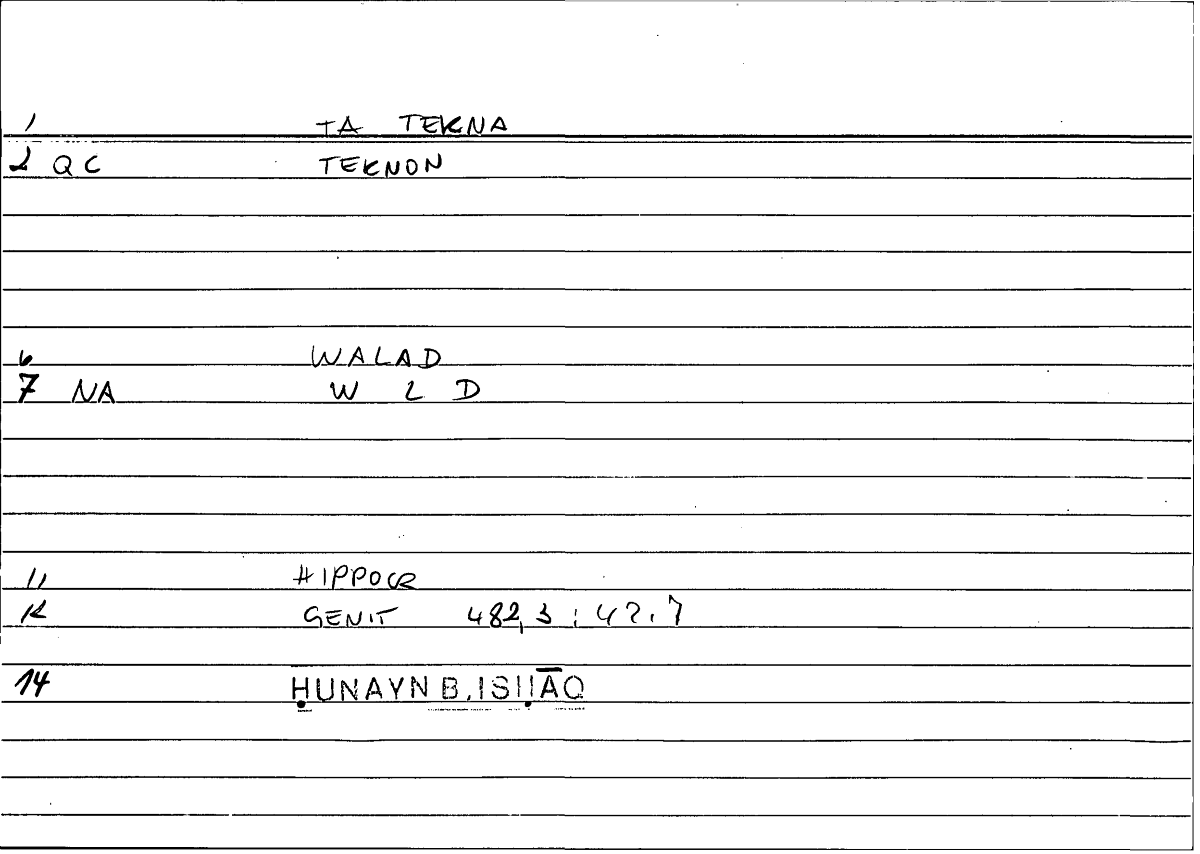 1 TA TEKNA
2 QC TEKNON
6 WALAD
7 NA W L D
11 HIPPOCR
12 GENIT 482,3 : 42.7
14 ḤUNAYN B. ISḤĀQ